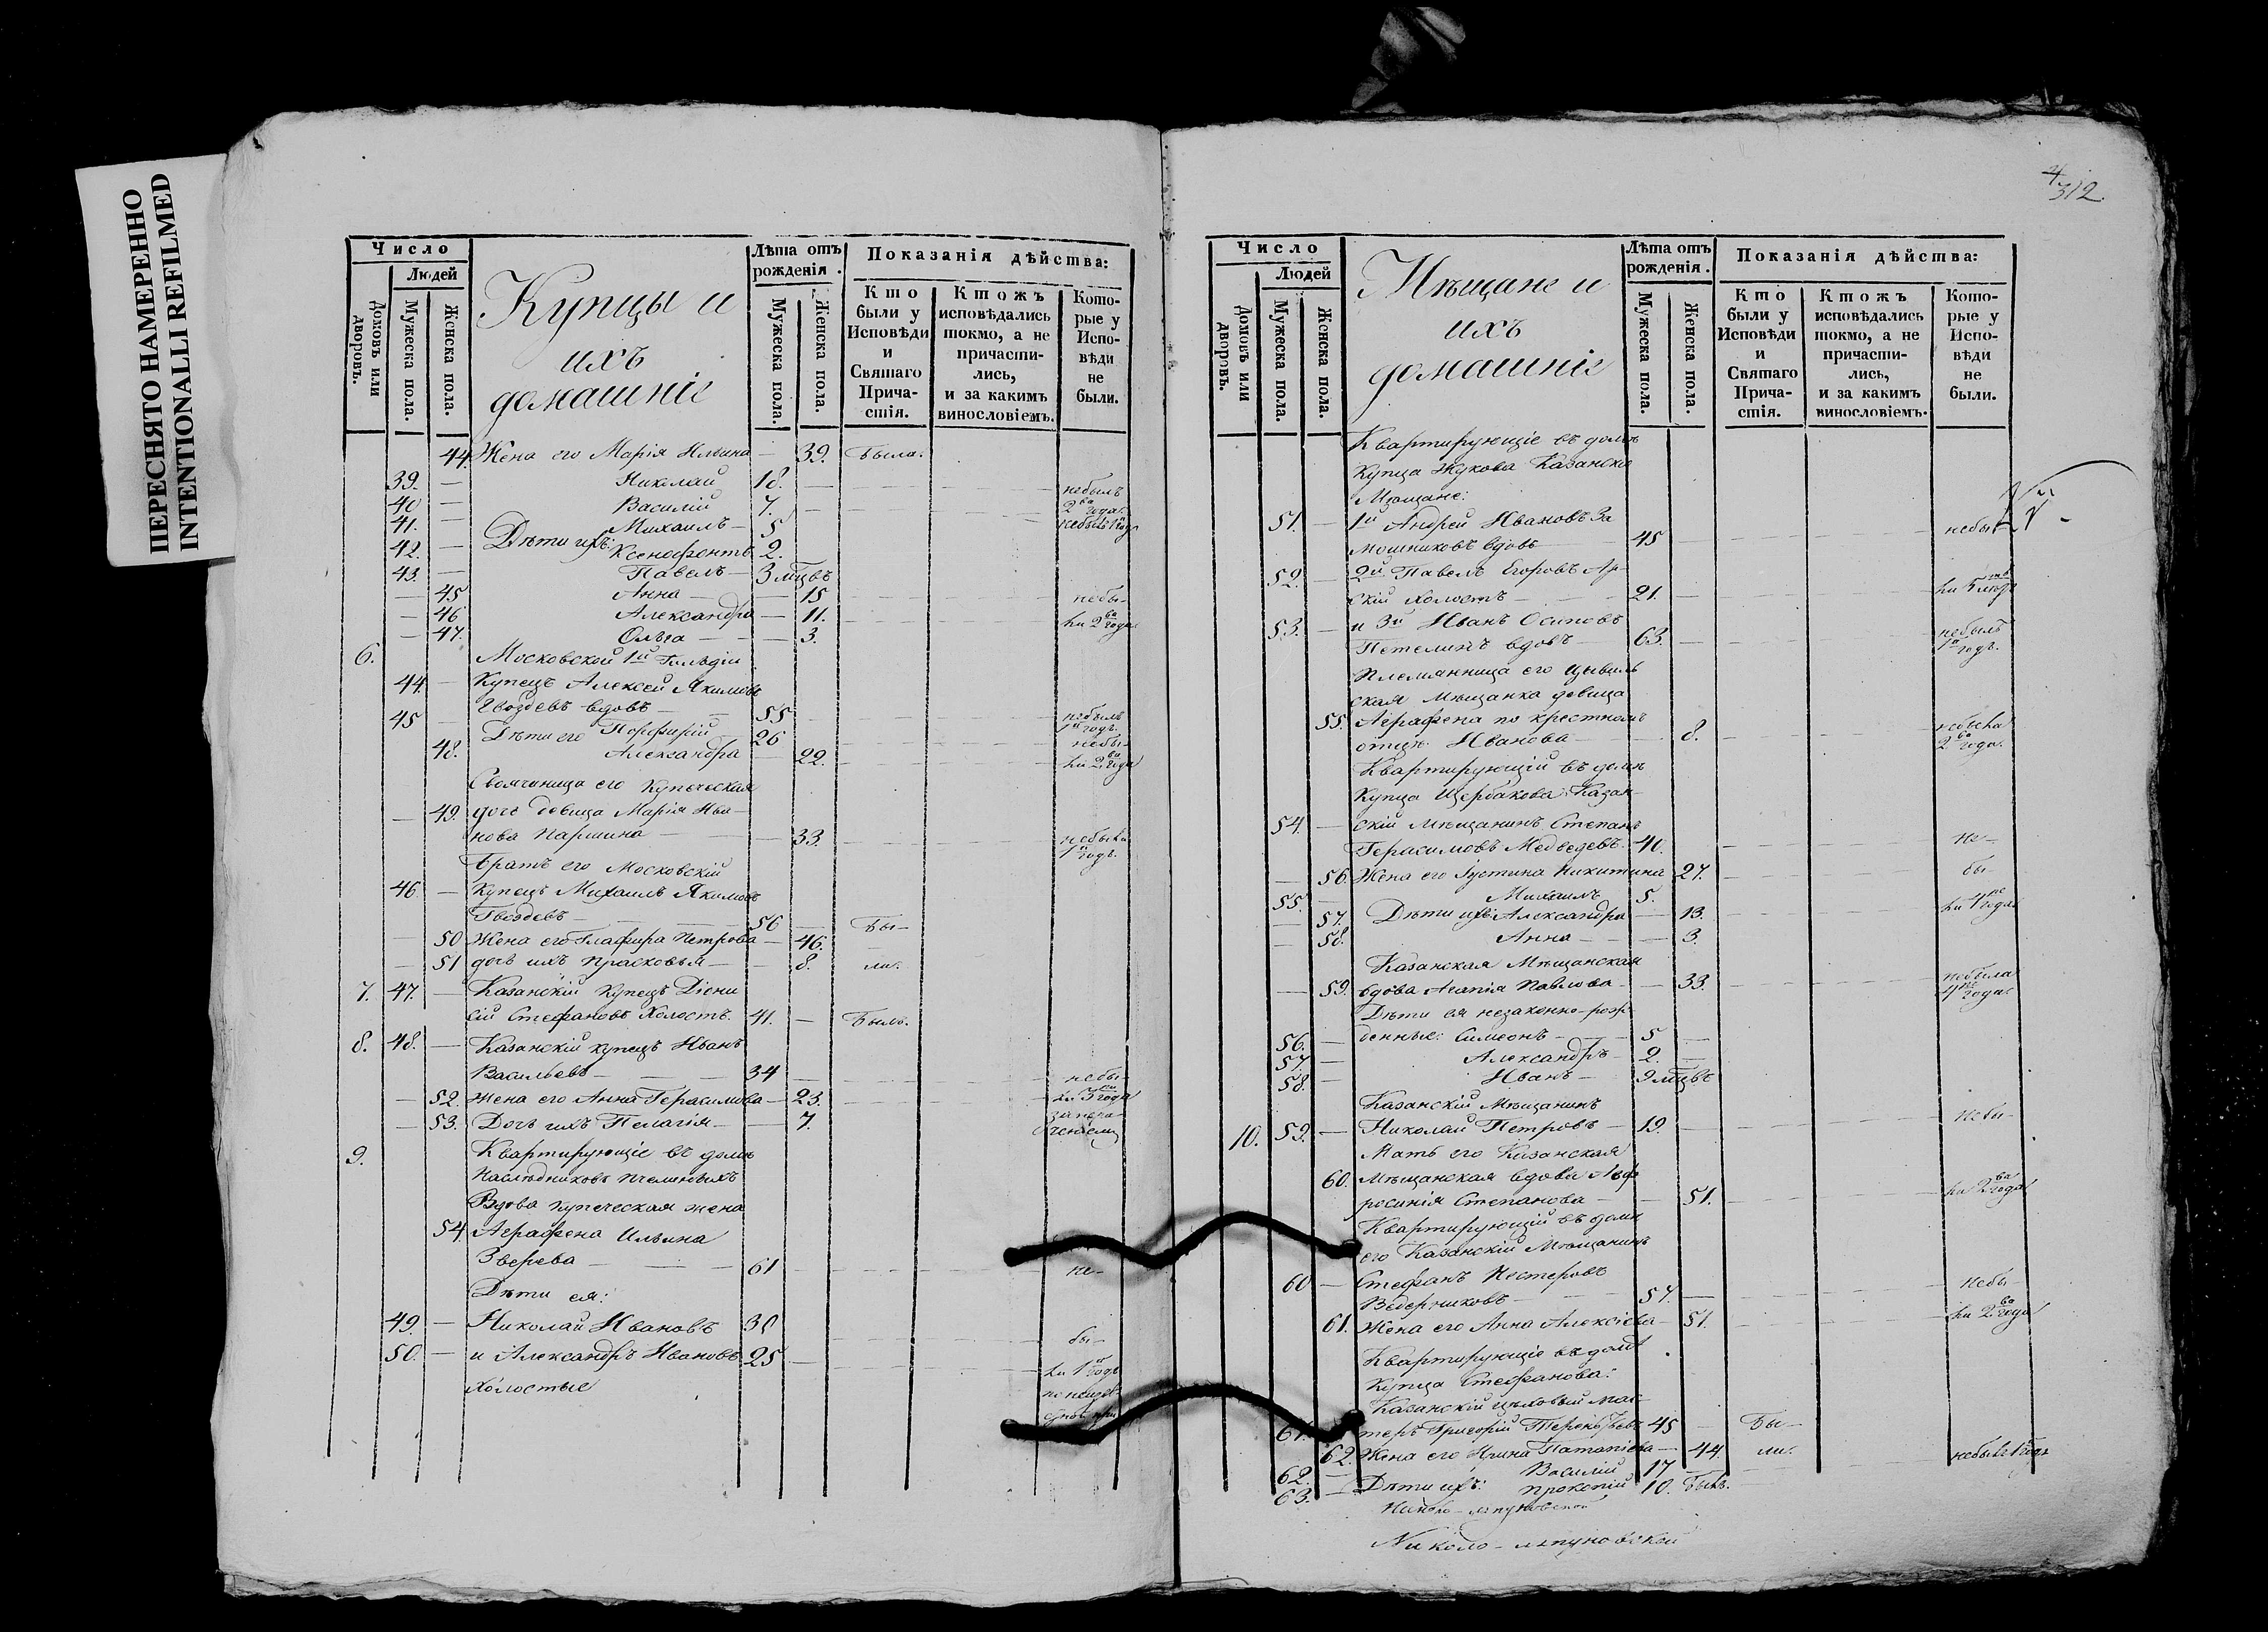 ПЕРЕСНЯТО НАМЕРЕННО
INTENTIONALLI REFILMED
Число
Людей
Домовъ или дворовъ.
Мужеска пола.
Женска пола.
Купцы и
ихъ
домашніе
Лѣта отъ рожденія.
Мужеска пола.
Женска пола.
Показанія дѣйства:
Кто были у Исповѣди и Святаго Причастія.
Ктожъ исповѣдались токмо, а не причастились, и за какимъ винословіемъ.
Которые у Исповѣди не были.
44. Жена его Марія Ильина — 39. Была.
39. — Николай 18. — небылъ
40 — Василій 7. — 2ва года.
41. — Михаилъ — 5 небылъ 1й годъ
Дѣти ихъ:
42. — Ксенофонтъ 2.
43. — Павелъ — 3 мцвъ
— 45 Анна — 15 небы-
— 46 Александра — 11. ли 2ва года
— 47. Ольга — 3.
6. Московской 1й Гильдіи
44. — Купецъ Алексей Якимовъ
Гвоздевъ вдовъ — 55 небылъ
45 — Дѣти его Порфирій — 26 1й годъ.
48. Александра — 22. небы-
ли 2ва года
Своячиница его Купеческая
— 49. дочь девица Марія Ива-
нова Паршина — 33. небыла
1й годъ.
Братъ его Московскій
46 — Купецъ Михаилъ Якимовъ
Гвоздевъ — 56 — Бы-
— 50 Жена его Глафира Петрова — 46.
— 51 дочь ихъ Прасковья — 8. ли.
7. 47. — Казанскій Купецъ Діони
сій Стефановъ Холостъ. 41. — Былъ.
8. 48. — Казанскій купецъ Иванъ
Васильевъ — 34 небы-
— 52. Жена его Анна Герасимова — 23. ли 3 года
— 53. Дочь ихъ Пелагія — 7.
9. Квартирующіе въ домѣ
Наслѣдниковъ
Вдова купеческая жена
54. Аграфена Ильина
Зверева — 61 не-
Дѣти ея:
49. — Николай Ивановъ 30 бы-
50. — и Александръ Ивановъ 25 ли 1й годъ
Холостые
4
312.
Число
Людей
Домовъ или дворовъ.
Мужеска пола.
Женска пола.
Мѣщане и
ихъ
домашніе
Лѣта отъ рожденія.
Мужеска пола.
Женска пола.
Показанія дѣйства:
Кто были у Исповѣди и Святаго Причастія.
Ктожъ исповѣдались токмо, а не причастились, и за какимъ винословіемъ.
Которые у Исповѣди не были.
Квартирующіе въ домѣ
Купца Жукова Казанскіе
Мѣщане:
51. — 1й Андрей Ивановъ За
мошниковъ вдовъ — 45 небы-
52. — 2й Павелъ Егоровъ Ар-
скій холостъ — 21.
53. — и 3й Иванъ Осиповъ
Петелинъ вдовъ — 63. небылъ
1й годъ.
Племянница его Цывиль
ская мѣщанка девица
55. Аграфена по крестномъ
отцѣ Иванова — 8. небыла
2ва года.
Квартирующій въ домѣ
Купца Щербакова Казан-
54. — скій мѣщанинъ Степанъ
Герасимовъ Медведевъ. 40. не-
— 56. Жена его Іустина Никитина 27. бы-
55. — Михаилъ 5.
— 57. Дѣти ихъ: Александра — 13.
— 58. Анна — 3.
Казанская Мѣщанская
— 59. вдова Агапія Павлова — 33. небыла
Дѣти ея незаконно-рож-
56. — денные: Симеонъ — 5
57. — Александръ — 2.
58. — Иванъ — 9 мцвъ
Казанскій Мѣщанинъ
10. 59. — Николай Петровъ — 19. небы-
Мать его Казанская
60. Мѣщанская вдова Ев
росинія Степанова — 51. ли 2ва года
Квартирующій въ домѣ
его Казанскій Мѣщанинъ
60 — Стефанъ Нестеровъ
Ведерниковъ — 57. небы-
61. Жена его Анна Алексіева — 51. ли 2ва года
Квартирующіе въ домѣ
Купца Стефанова:
Казанскій цеховый мас-
61. теръ Григорій 45 — Бы-
62. Жена его Ирина — 44. ли.
62. — Василій 17 небылъ 1й годъ
63. — Дѣти ихъ: Прокопій 10. былъ.
Николо-ляпуновской
Николо-ляпуновской